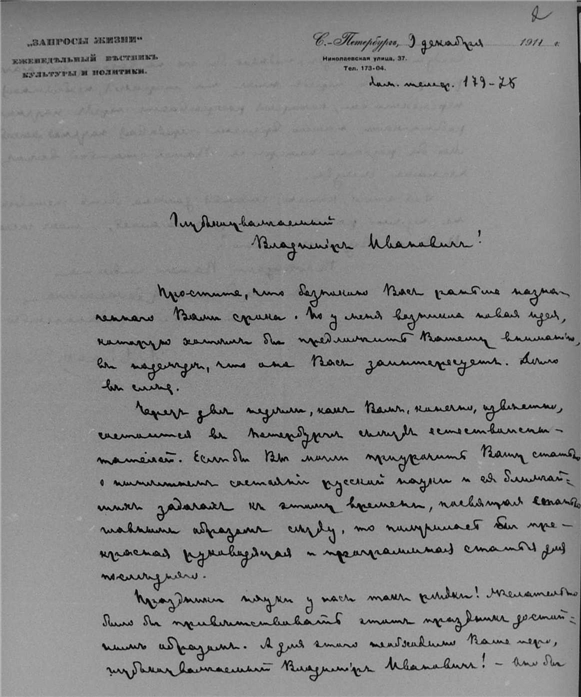 2
„ЗАПРОСЫ ЖИЗНИ"
ЕЖЕНЕДѢЛЬНЫЙ ВѢСТНИКЪ
КУЛЬТУРЫ И ПОЛИТИКИ.
С.-Петербургъ, 9 декабря 1911 г.
Николаевская улица, 37.
Тел. 173-04.
телеф. 179-75
Глубокоуважаемый
Владиміръ Ивановичъ!
Простите, что безпокою Васъ раньше назна-
ченнаго Вами срока. Но у меня возникла новая идея,
которую хотѣлъ бы предложить Вашему вниманію,
въ надеждѣ, что она Васъ заинтересуетъ. Дѣло
въ слѣд.
Черезъ двѣ недѣли, какъ Вамъ, конечно, извѣстно,
состоится въ Петербургѣ съѣздъ естествоиспы-
тателей. Если бы Вы могли пріурочить Вашу статью
о состояніи русской науки и ея ближай-
шихъ задачахъ къ этому времени, посвятивъ
главнымъ образомъ съѣзду, то получилась бы пре-
красная руководящая и программная статья для
послѣдняго.
Праздники науки у насъ такъ рѣдки! Желательно
было бы привѣтствовать этотъ праздникъ достой-
нымъ образомъ. А для этого необходимо Ваше перо,
глубокоуважаемый Владиміръ Ивановичъ! – Оно бы